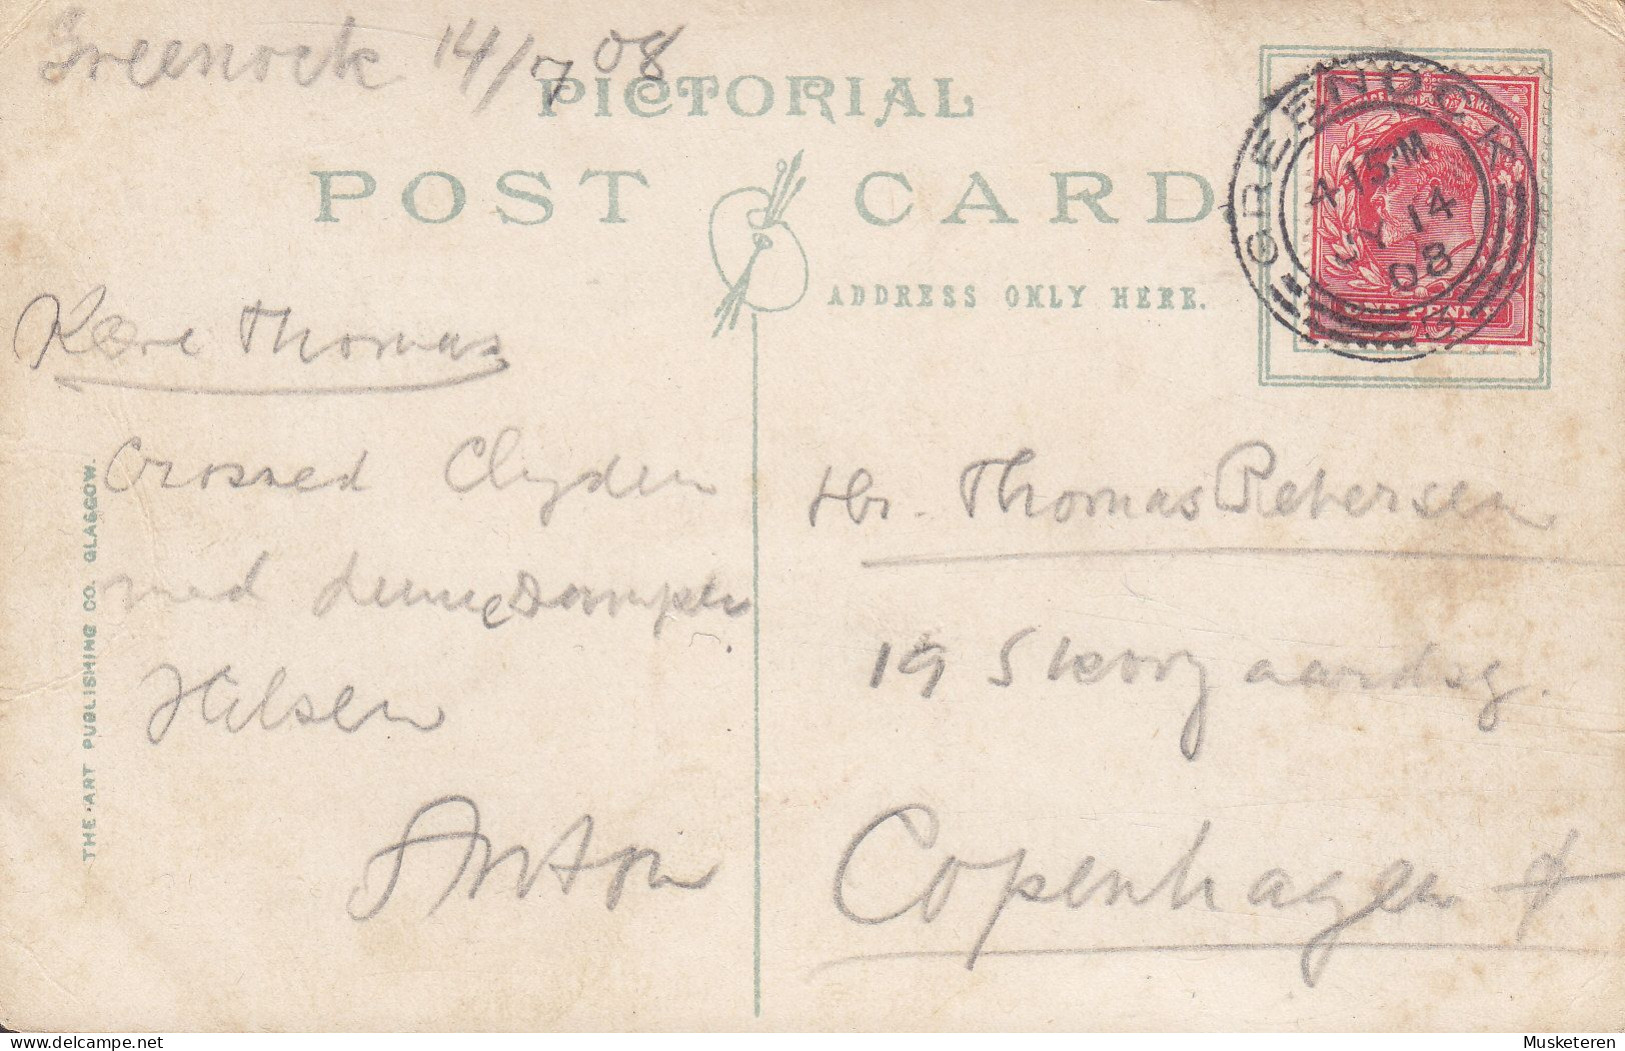 Greenock 14/7 08
PICTORIAL
POST CARD
ADDRESS ONLY HERE.
GREENOCK
4.15PM
JY 14
08
ONE PENNY
Kære Thomas
Crossed Clyden
med denne Damper
Hilsen
Anton
Hr. Thomas Petersen
19 Skovgaardsg.
Copenhagen
THE ART PUBLISHING CO. GLASGOW.
Musketeren